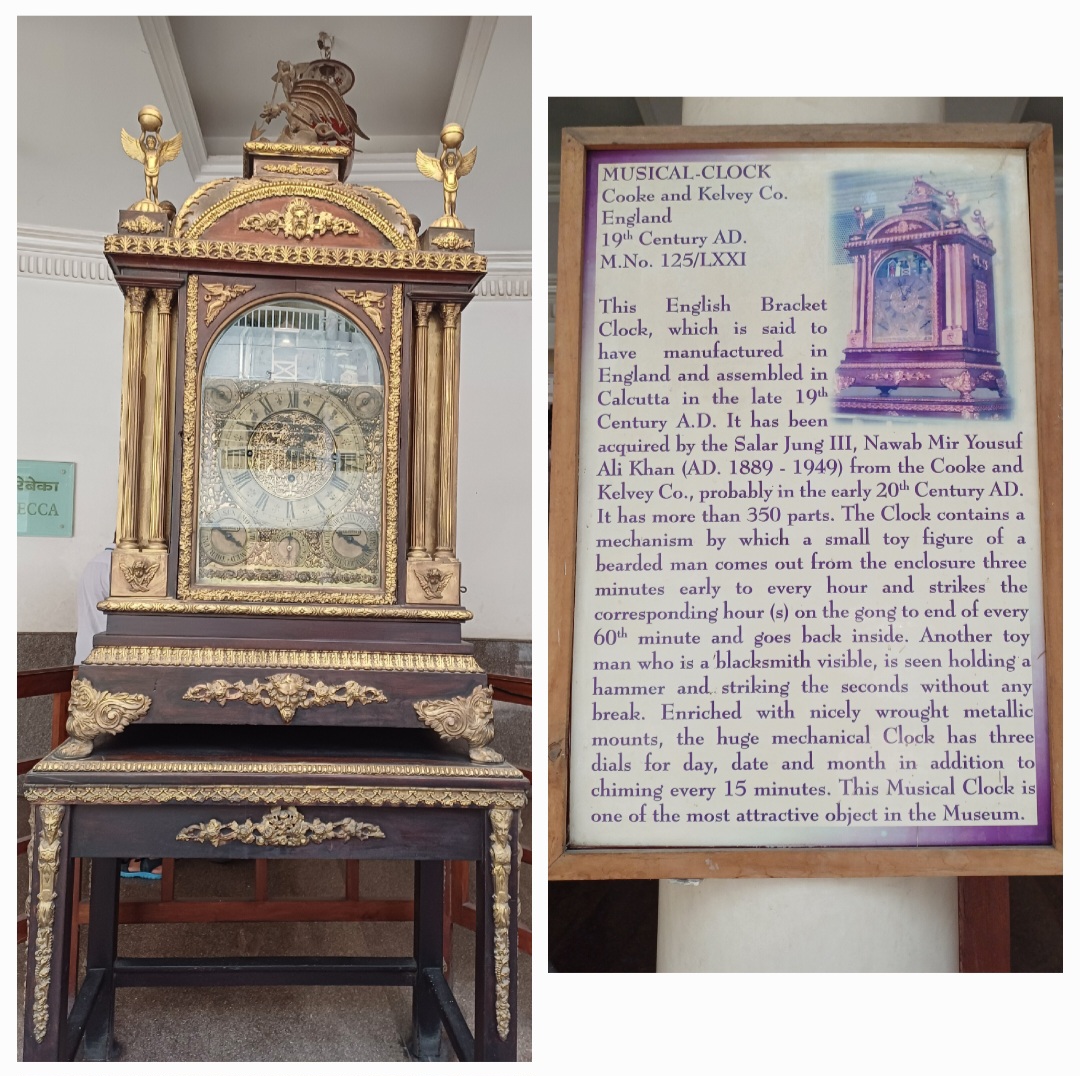 रेबेका
ECCA
MUSICAL-CLOCK
Cooke and Kelvey Co.
England
19th Century AD.
M.No. 125/LXXI
This English Bracket
Clock, which is said to
have manufactured in
England and assembled in
Calcutta in the late 19th
Century A.D. It has been
acquired by the Salar Jung III, Nawab Mir Yousuf
Ali Khan (AD. 1889 - 1949) from the Cooke and
Kelvey Co., probably in the early 20th Century AD.
It has more than 350 parts. The Clock contains a
mechanism by which a small toy figure of a
bearded man comes out from the enclosure three
minutes early to every hour and strikes the
corresponding hour (s) on the gong to end of every
60th minute and goes back inside. Another toy
man who is a blacksmith visible, is seen holding a
hammer and striking the seconds without any
break. Enriched with nicely wrought metallic
mounts, the huge mechanical Clock has three
dials for day, date and month in addition to
chiming every 15 minutes. This Musical Clock is
one of the most attractive object in the Museum.